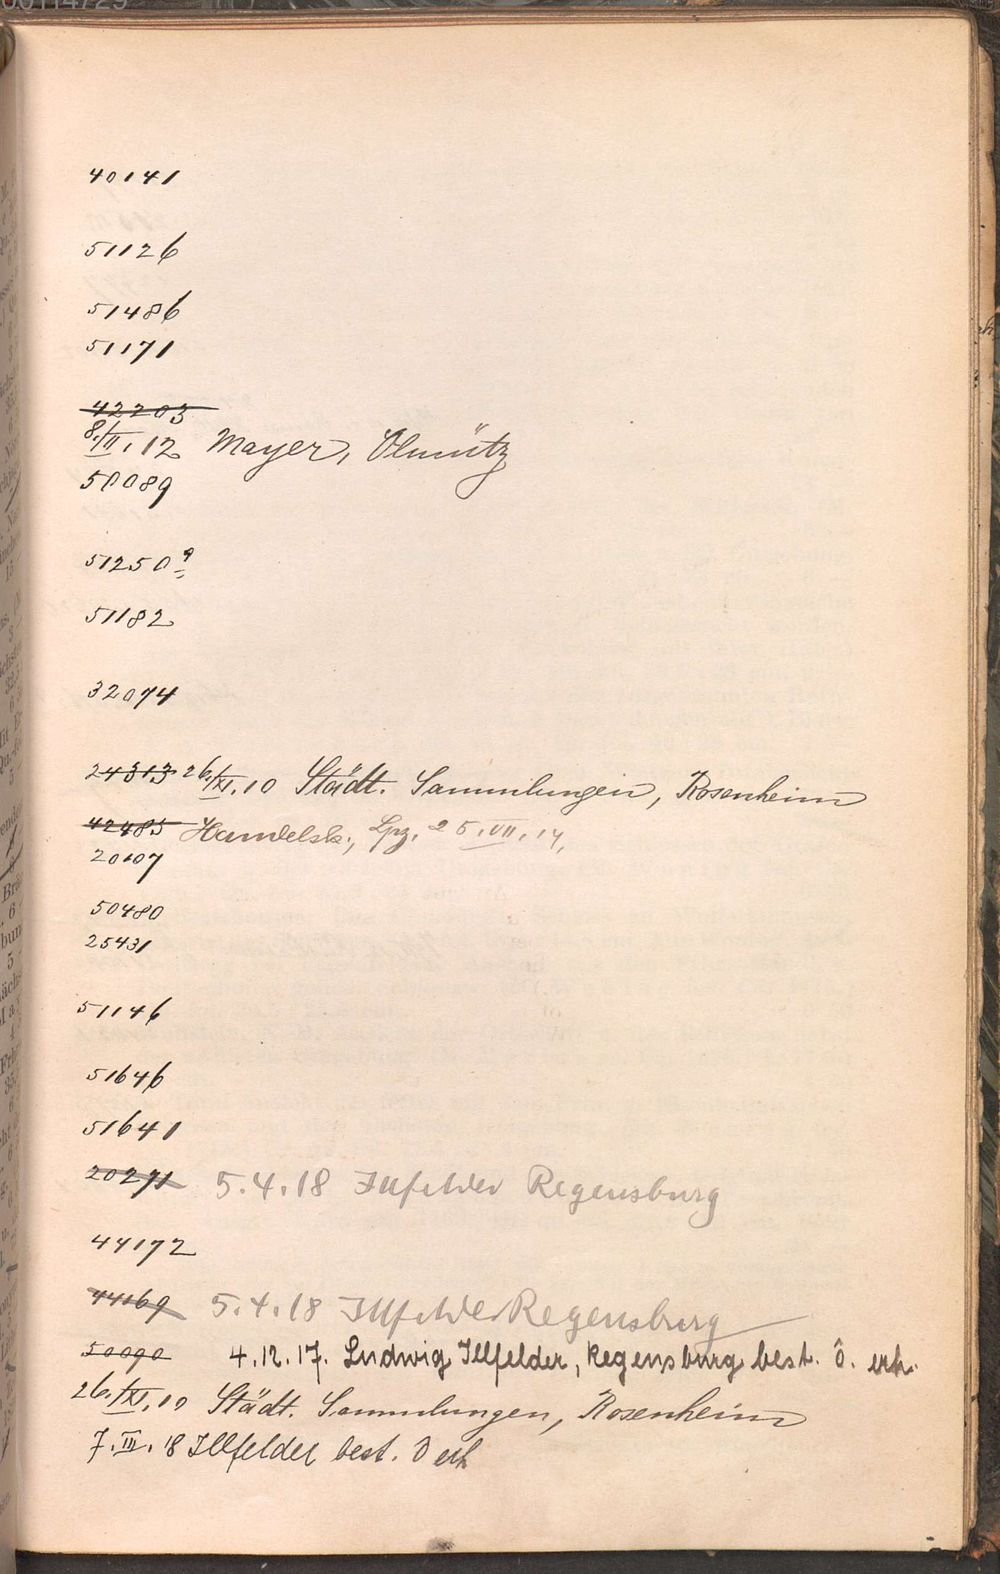 40141
51126
51486
51171
42203
8./II.12 Mayer, Olmütz
50089
51250ª
51182
32074
24313 26./XI.10 Städt. Sammlungen, Rosenheim
42485 Handelsb., Lpz. 25.VII.14.
20107
50480
25431
51146
51646
51641
20271 5.4.18 Illfelder Regensburg
44172
44169 5.4.18 Illfelder Regensburg
50090 4.12.17. Ludwig Illfelder, Regensburg best. 0. erh.
26./XI.10 Städt. Sammlungen, Rosenheim
7.III.18 Illfelder best. 0 erh